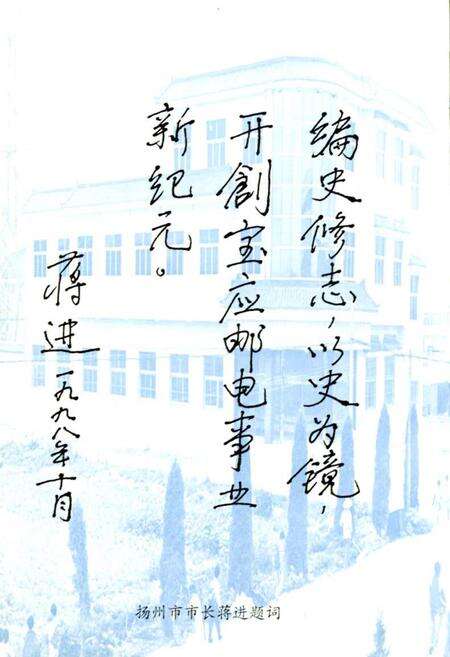 编史修志，以史为镜，
开創宝应邮电事业
新纪元。
蒋进 一九九八年十月
扬州市市长蒋进题词